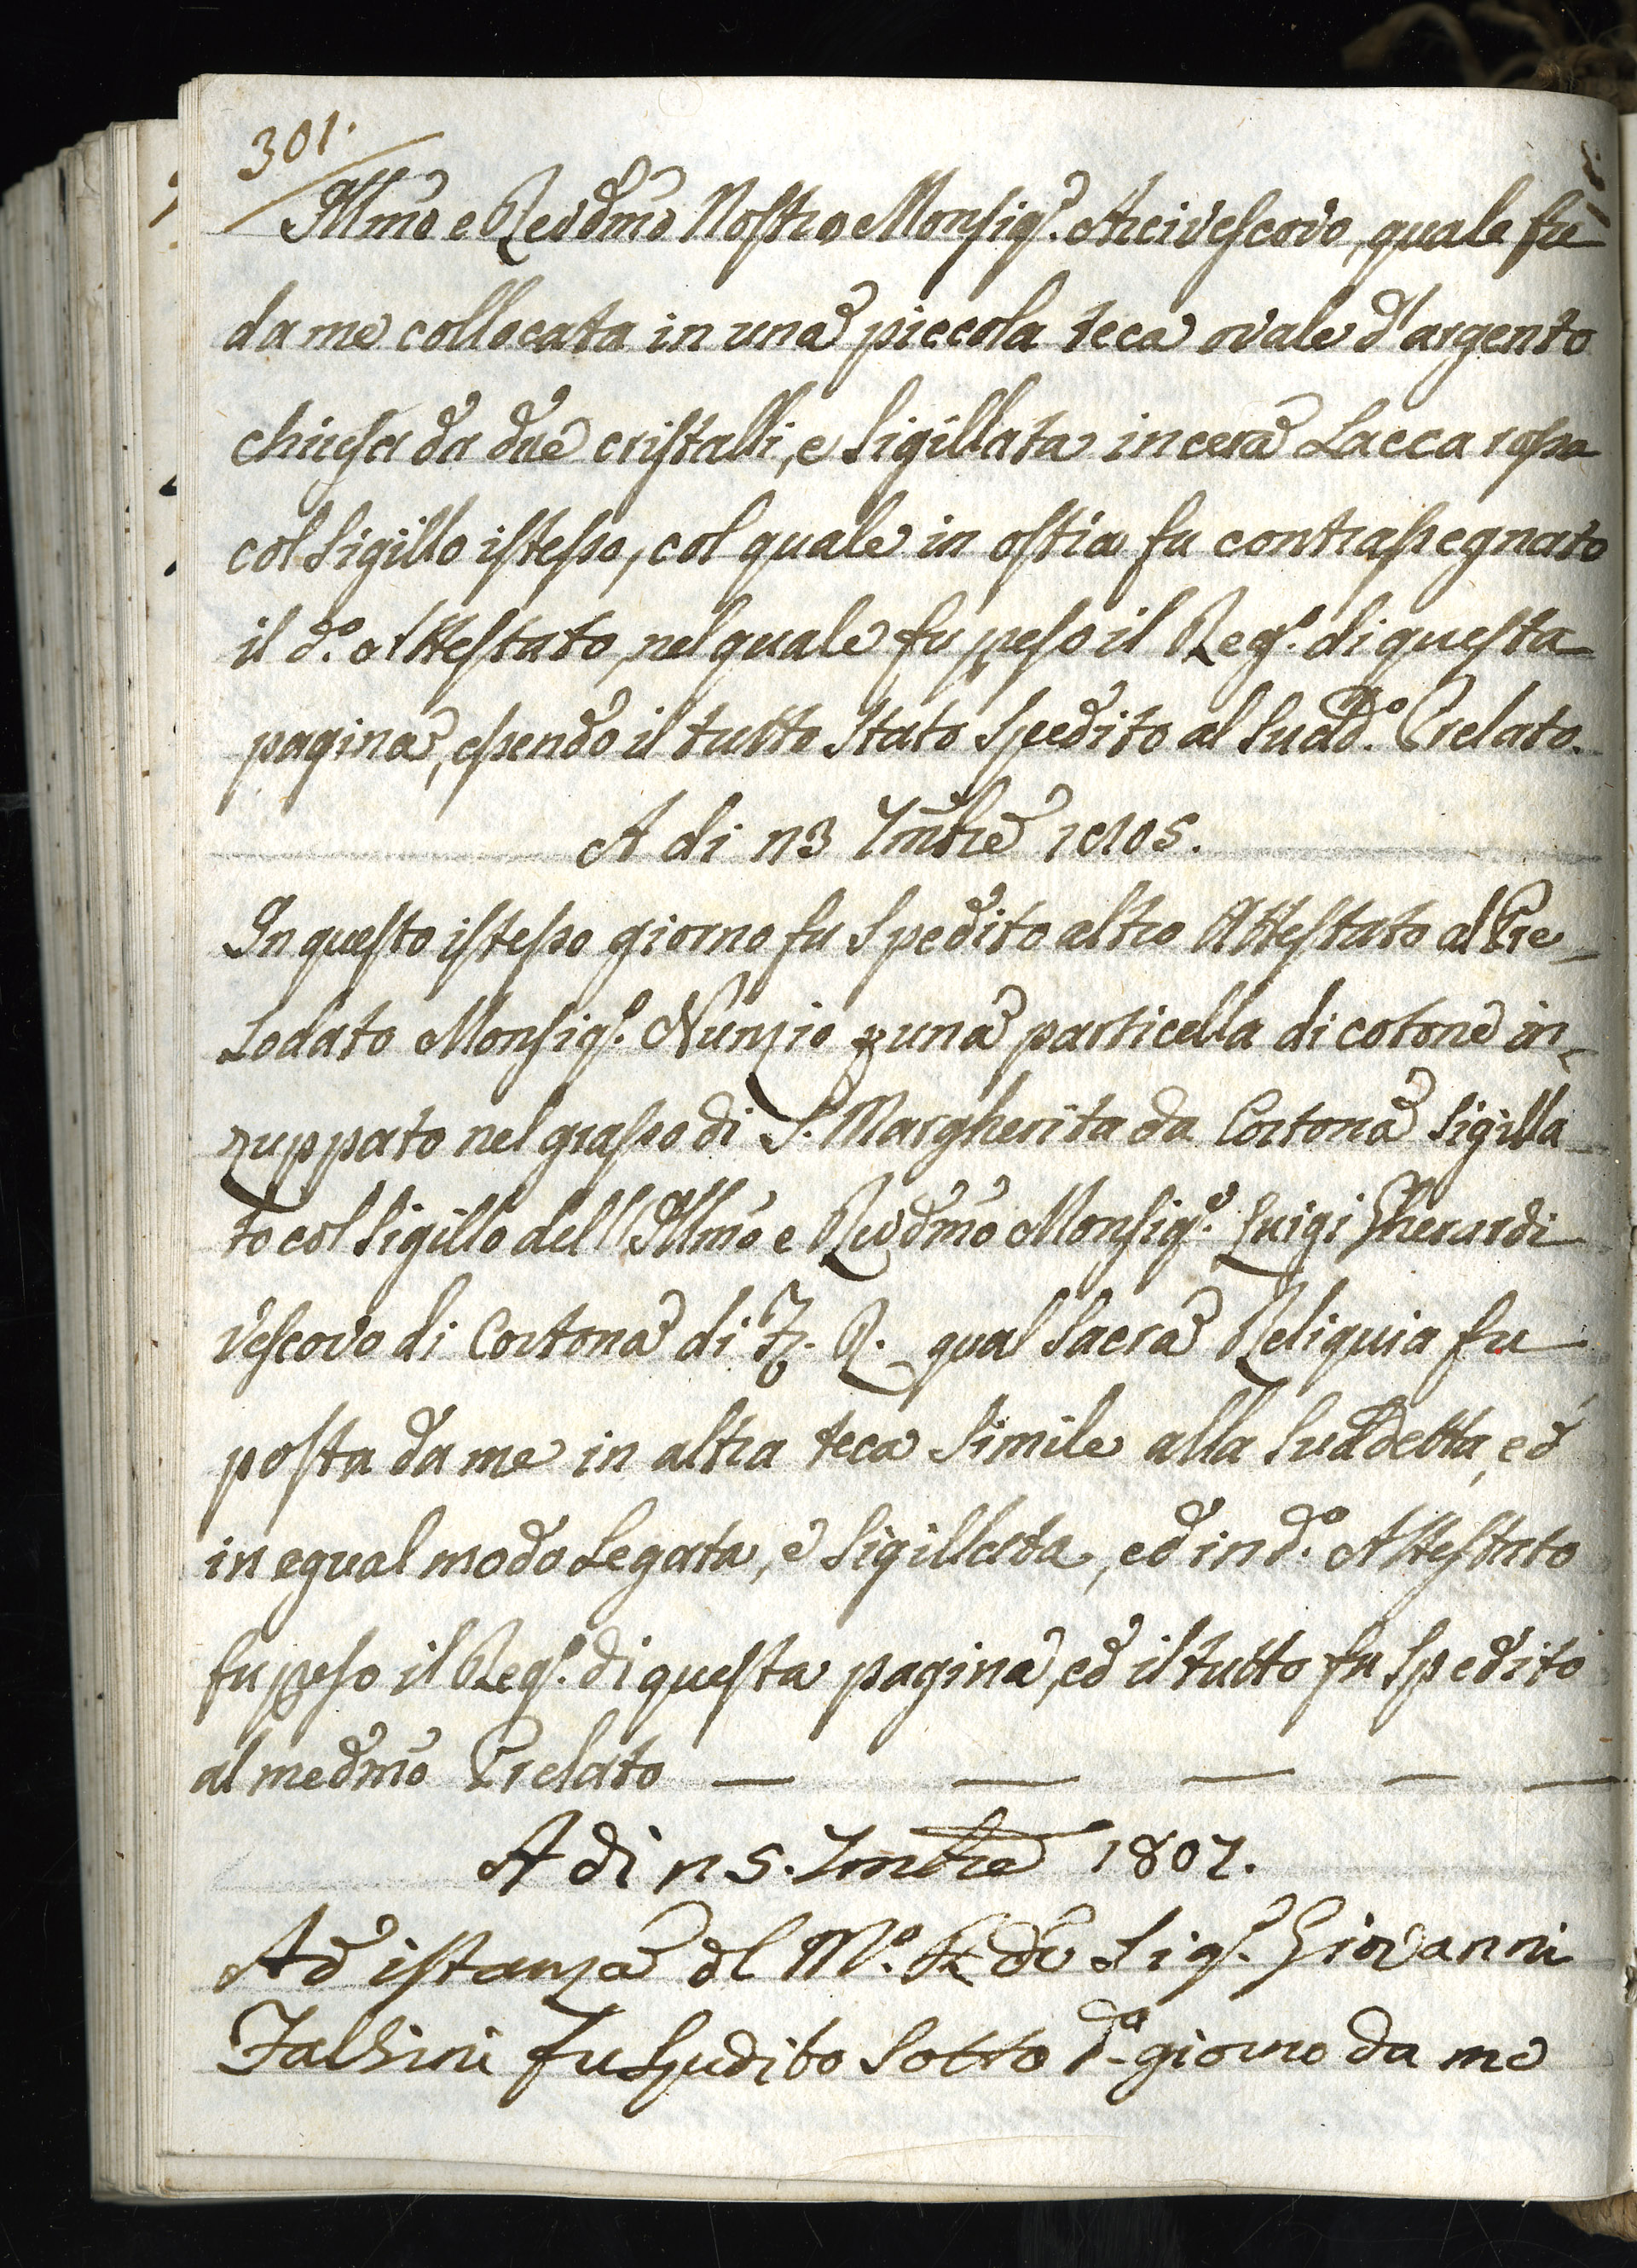 301.
Illmo e Revdmo Nostro Monsigr. Arcivescovo, quale fu
da me collocata in una piccola teca ovale d'argento
chiusa da due cristalli, e sigillata in cera Lacca rossa
col sigillo istesso, col quale in ostia fu contrassegnato
il do. Attestato, nel quale fu preso il Rego. di questa
pagina, essendo il tutto stato spedito al sudd.o Prelato.
A di 13 7mbre 1805.
In questo istesso giorno fu spedito altro Attestato al Pre-
Lodato Monsigr. Nunzio p una particella di cotone in-
zuppato nel grasso di S. Margherita da Cortona sigilla
to col sigillo dell'Illmo e Revdmo Monsigr. Luigi Gherardi
Vescovo di Cortona di R. qual sacra Reliquia fu
posta da me in altra teca simile alla suddetta, ed
in egual modo Legata, e sigillata, ed in do. Attestato
fu preso il Rego. di questa pagina, ed il tutto fu spedito
al medmo Prelato — — — — —
A di 15. 7mbre 1807.
Ad istanza dl Mo. Sigr. Giovanni
fu spedito sotto do. giorno da me